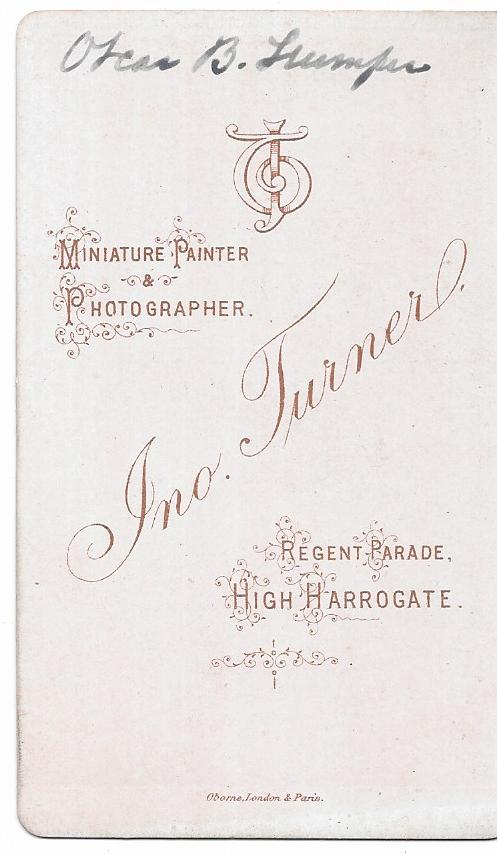 Oscar B. Stumper
MINIATURE PAINTER
&
PHOTOGRAPHER.
Jno. Turner.
REGENT PARADE,
HIGH HARROGATE.
Oborne, London & Paris.